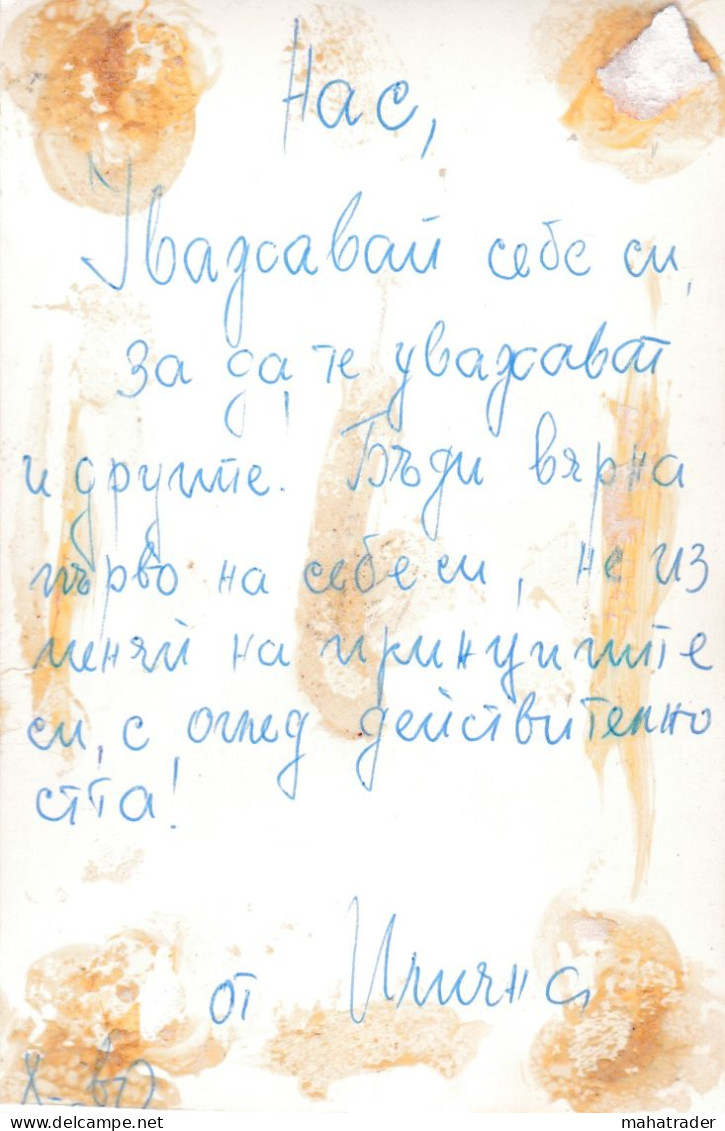 Нас,
Уважавай себе си,
за да те уважават
и другите. Бъди вярна
първо на себе си, не из
меняй на принципите
си, с оглед действителнo
стта!
от Илияна
delcampe.net
mahatrader